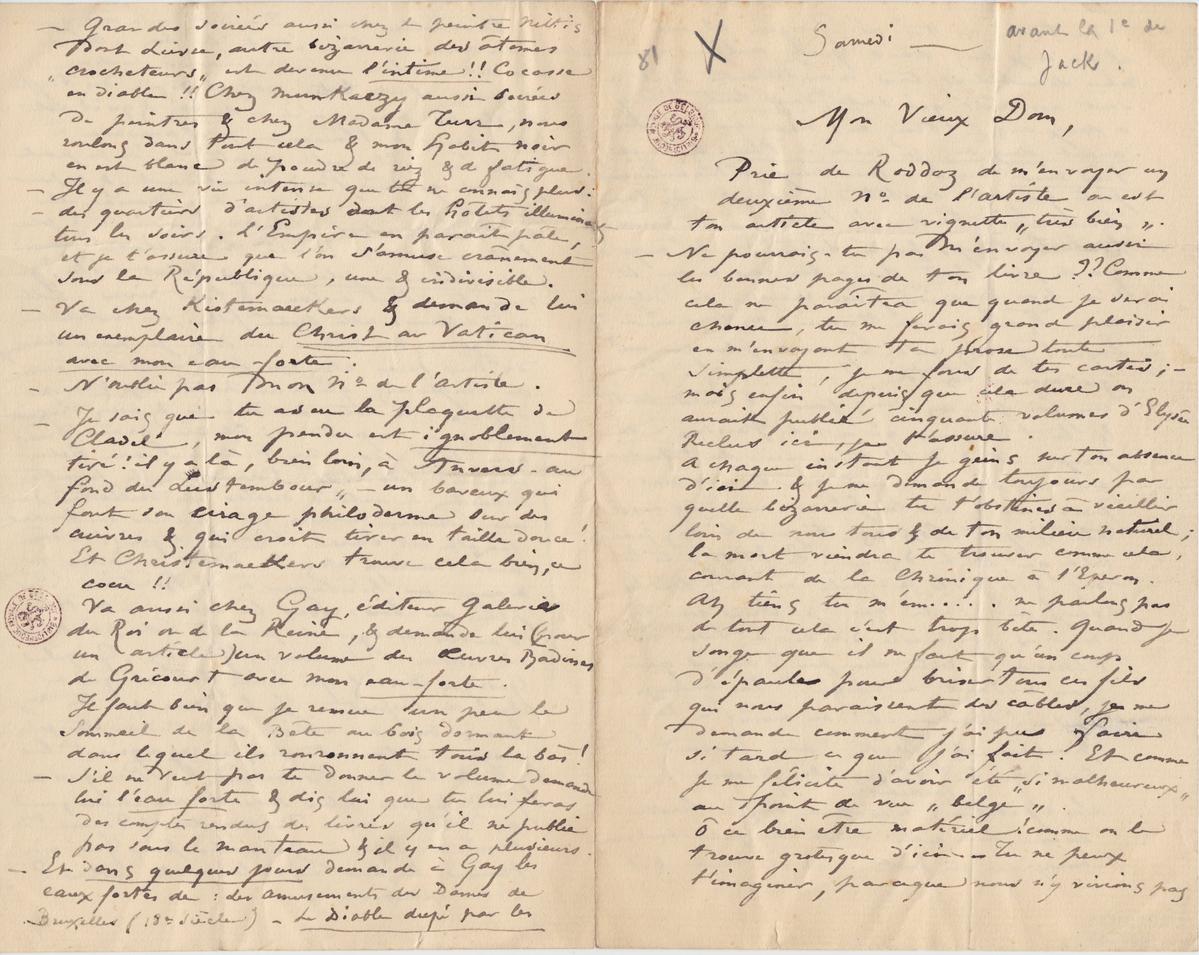 81
Samedi —
avant la 1e de
Jack.
Mon Vieux Dom,
Prie de Roddaz de m'envoyer un
deuxième No de l'artiste où est
ton article avec vignette „très bien".
— Ne pourrais-tu pas m'envoyer aussi
les bonnes pages de ton livre ?? Comme
cela ne paraîtra que quand je serai
chenu, tu me ferais grand plaisir
en m'envoyant ta prose toute
simplette, je me fous de tes cartes; —
mais enfin depuis que cela dure on
aurait publié cinquante volumes d'Elysée
Reclus ici, je t'assure.
A chaque instant je geins sur ton absence
d'ici. & je me demande toujours par
quelle bizarrerie tu t'obstines à vieillir
loin de nous tous & de ton milieu naturel;
la mort viendra te trouver comme cela,
courant de la Chronique à l'Eperon.
Ah tiens tu m'em..... ne parlons pas
de tout cela c'est trop bête. Quand je
songe que il ne faut qu'un coup
d'épaules pour briser tous ces fils
qui nous paraissent des câbles, je me
demande comment j'ai pu faire
si tard ce que j'ai fait! Et comme
je me félicite d'avoir été „si malheureux"
au point de vue „belge".
Ô ce bien être matériel! comme on le
trouve grotesque d'ici — Tu ne peux
t'imaginer, parceque nous n'y vivions pas
— Grandes soirées aussi chez le peintre Nittis
dont Liesse, autre bizarrerie des atomes
„crocheteurs" est devenu l'intime!! Cocasse
en diable!! Chez Munkaczy aussi soirées
de peintres & chez Madame Turr, nous
roulons dans tout cela & mon habit noir
en est blanc de poudre de riz & de fatigue.
— Il y a une vie intense que tu ne connais plus.
— des quartiers d'artistes dont les hôtels illuminés
tous les soirs. L'Empire en paraît pâle,
et je t'assure que l'on s'amuse crânement
sous la République, une & indivisible.
— Va chez Kistemaeckers & demande lui
un exemplaire du Christ au Vatican
avec mon eau-forte.
— N'oublie pas mon No de l'artiste.
— Je sais que tu as eu la plaquette de
Cladel, mon pendu est ignoblement
tiré! il y a là, bien loin, à Anvers - au
fond du — un baveux qui
fout son cirage philoderme sur des
cuivres & qui croit tirer en taille douce!
Et Christemaekers trouve cela bien, ce
cocu!!
Va aussi chez Gay, éditeur Galerie
du Roi ou de la Reine, & demande lui (pour
un article) un volume des Œuvres Badines
de Grécourt avec mon eau-forte.
Il faut bien que je remue un peu le
Sommeil de la Bête au bois dormant
dans lequel ils ronronnent tous là bas!
— S'il ne veut pas te donner le volume demande
lui l'eau forte & dis lui que tu lui feras
des comptes rendus des livres qu'il ne publie
pas sous le manteau & il y en a plusieurs.
— Et dans quelques jours demande à Gay les
eaux fortes de : des amusements des Dames de
Bruxelles (18e siècle) — Le Diable dupé par les